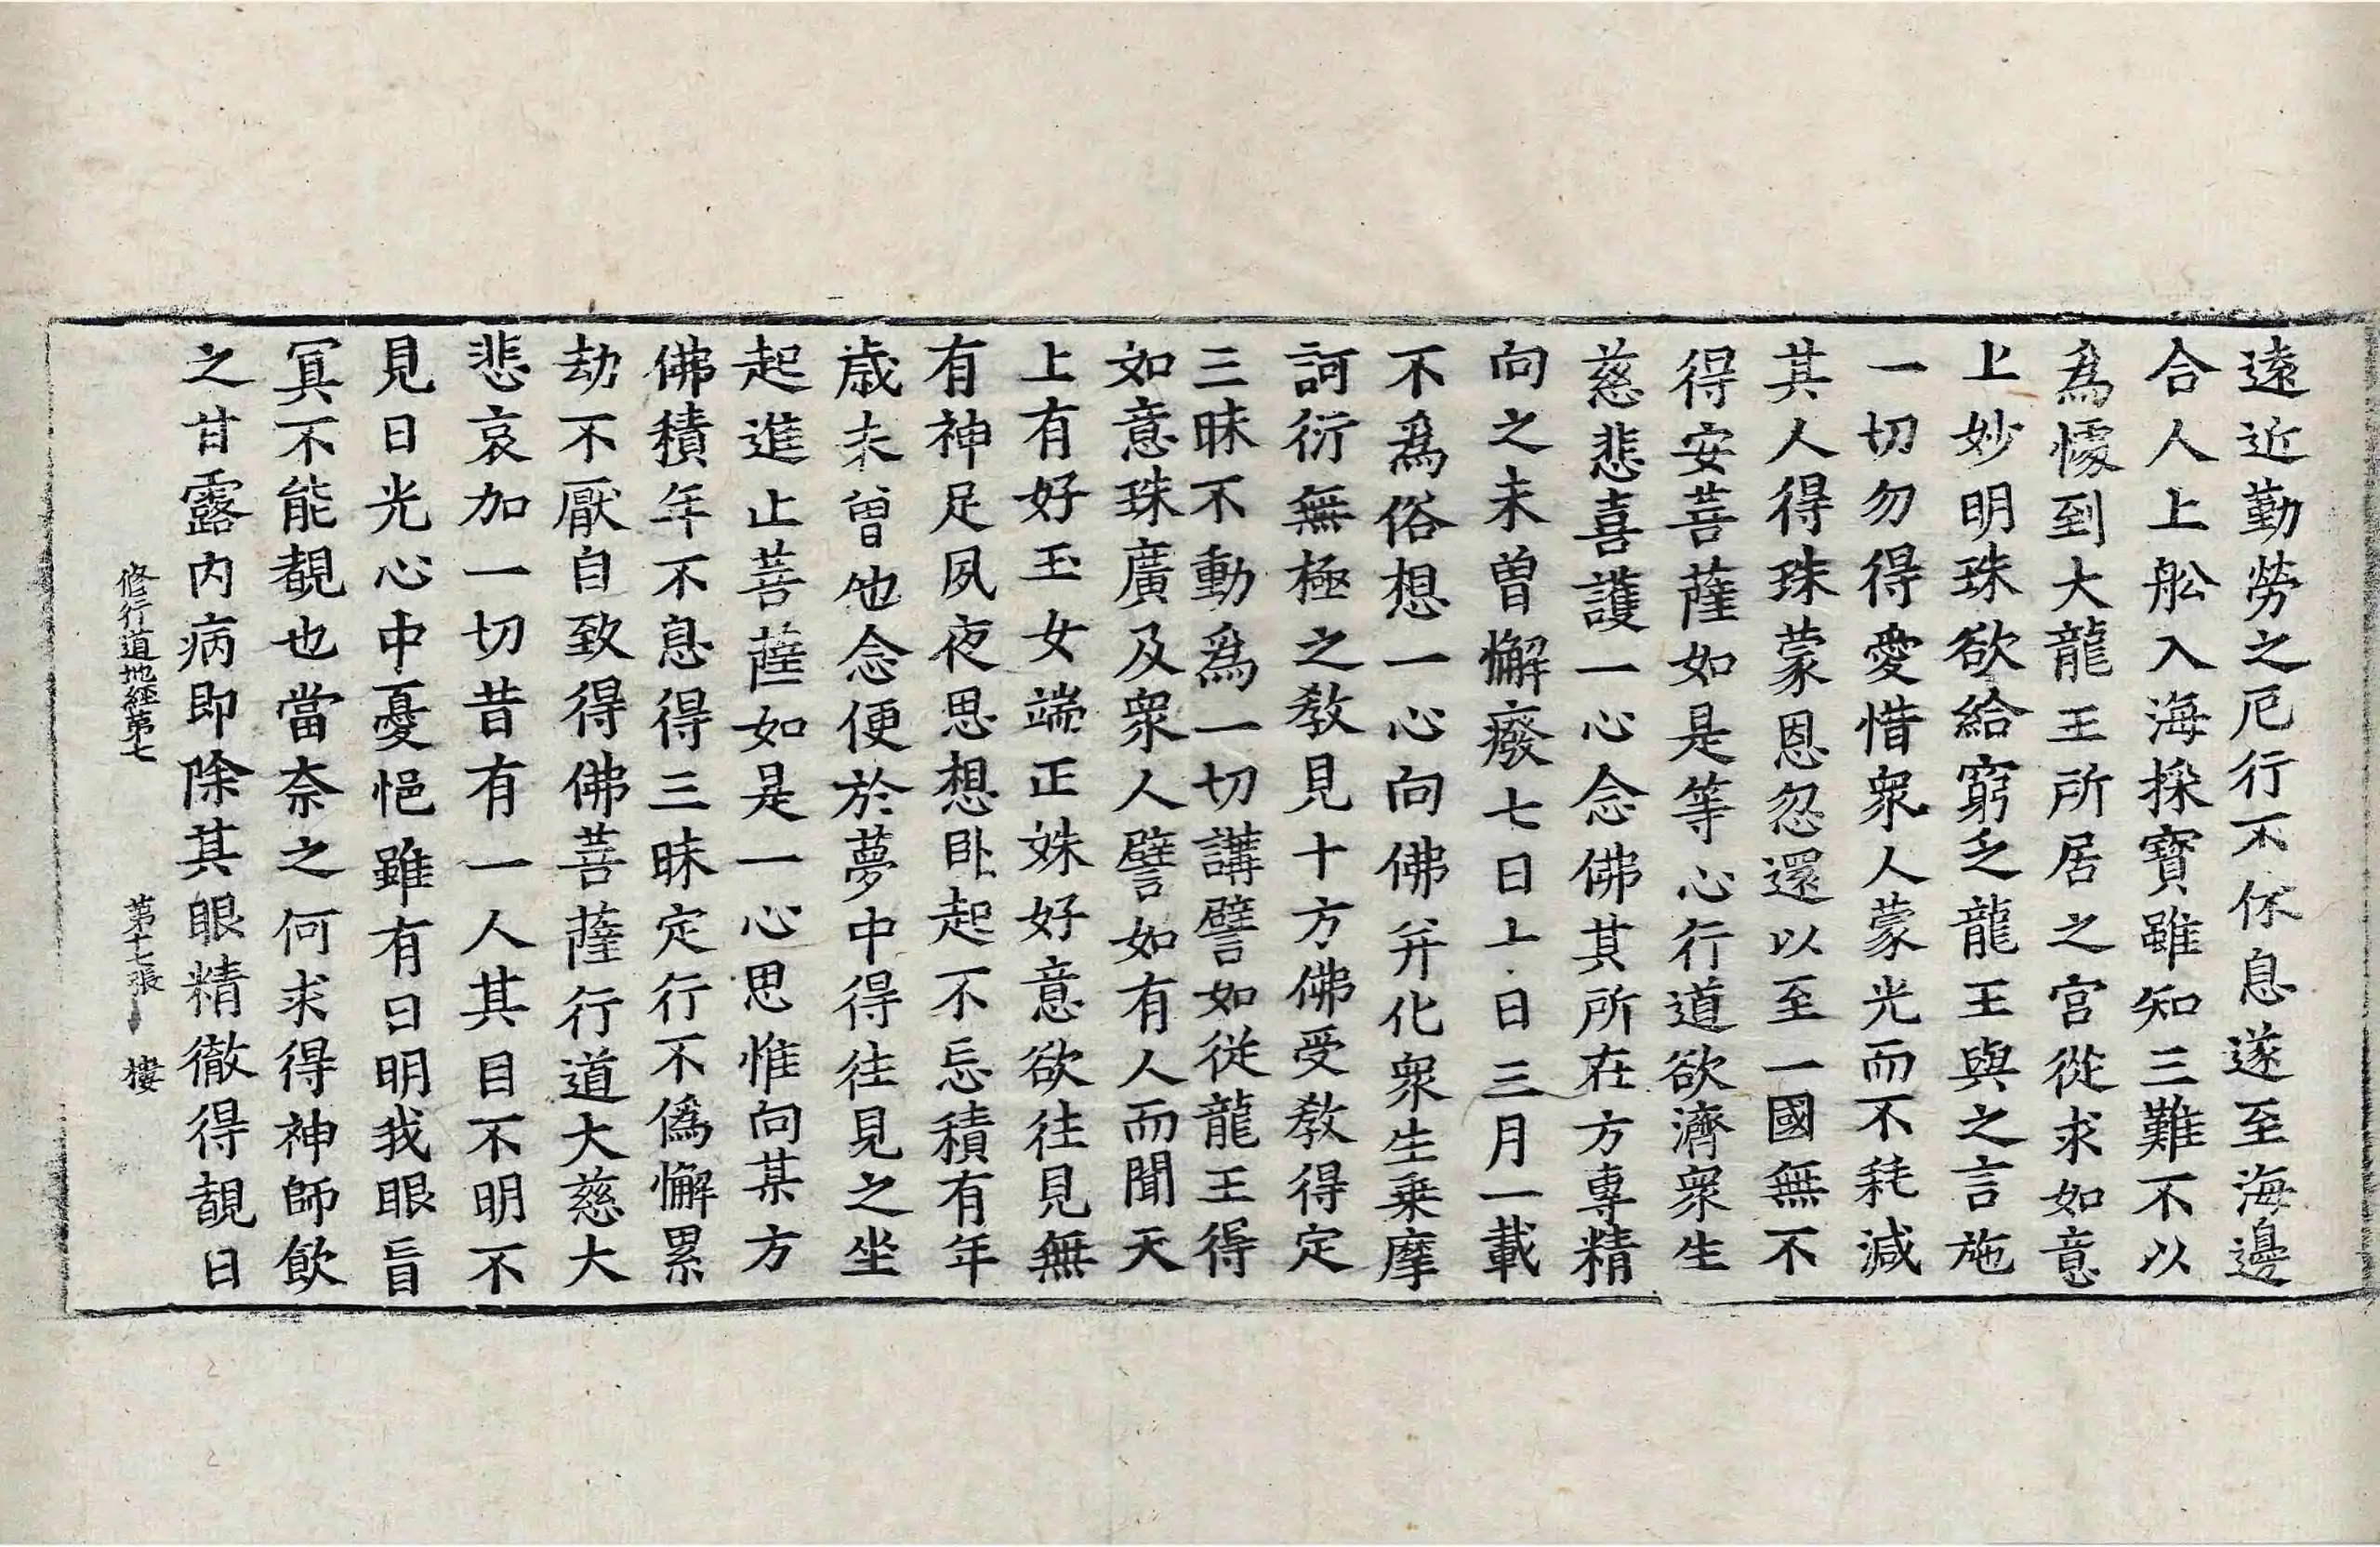 遠近勤勞之厄行不休息遂至海邊
合人上舩入海採寶雖知三難不以
為懅到大龍王所居之宫從求如意
上妙明珠欲給窮乏龍王與之言施
一切勿得愛惜衆人蒙光而不耗減
其人得珠蒙恩忽還以至一國無不
得安菩薩如是等心行道欲濟衆生
慈悲喜護一心念佛其所在方專精
向之未曽懈癈七日上日三月一載
不爲俗想一心向佛并化衆生乗摩
訶衍無極之教見十方佛受教得定
三昧不動爲一切講譬如從龍王得
如意珠廣及衆人譬如有人而聞天
上有好玉女端正姝好意欲往見無
有神足夙夜思想卧起不忘積有年
歳未曽他念便於夢中得往見之坐
起進止菩薩如是一心思惟向某方
佛積年不息得三昧定行不偽懈累
劫不厭自致得佛菩薩行道大慈大
悲哀加一切昔有一人其目不明不
見日光心中憂悒雖有日明我眼盲
冥不能覩也當奈之何求得神師飲
之甘露内病即除其眼精徹得覩日
修行道地經第七 第十七張 樓